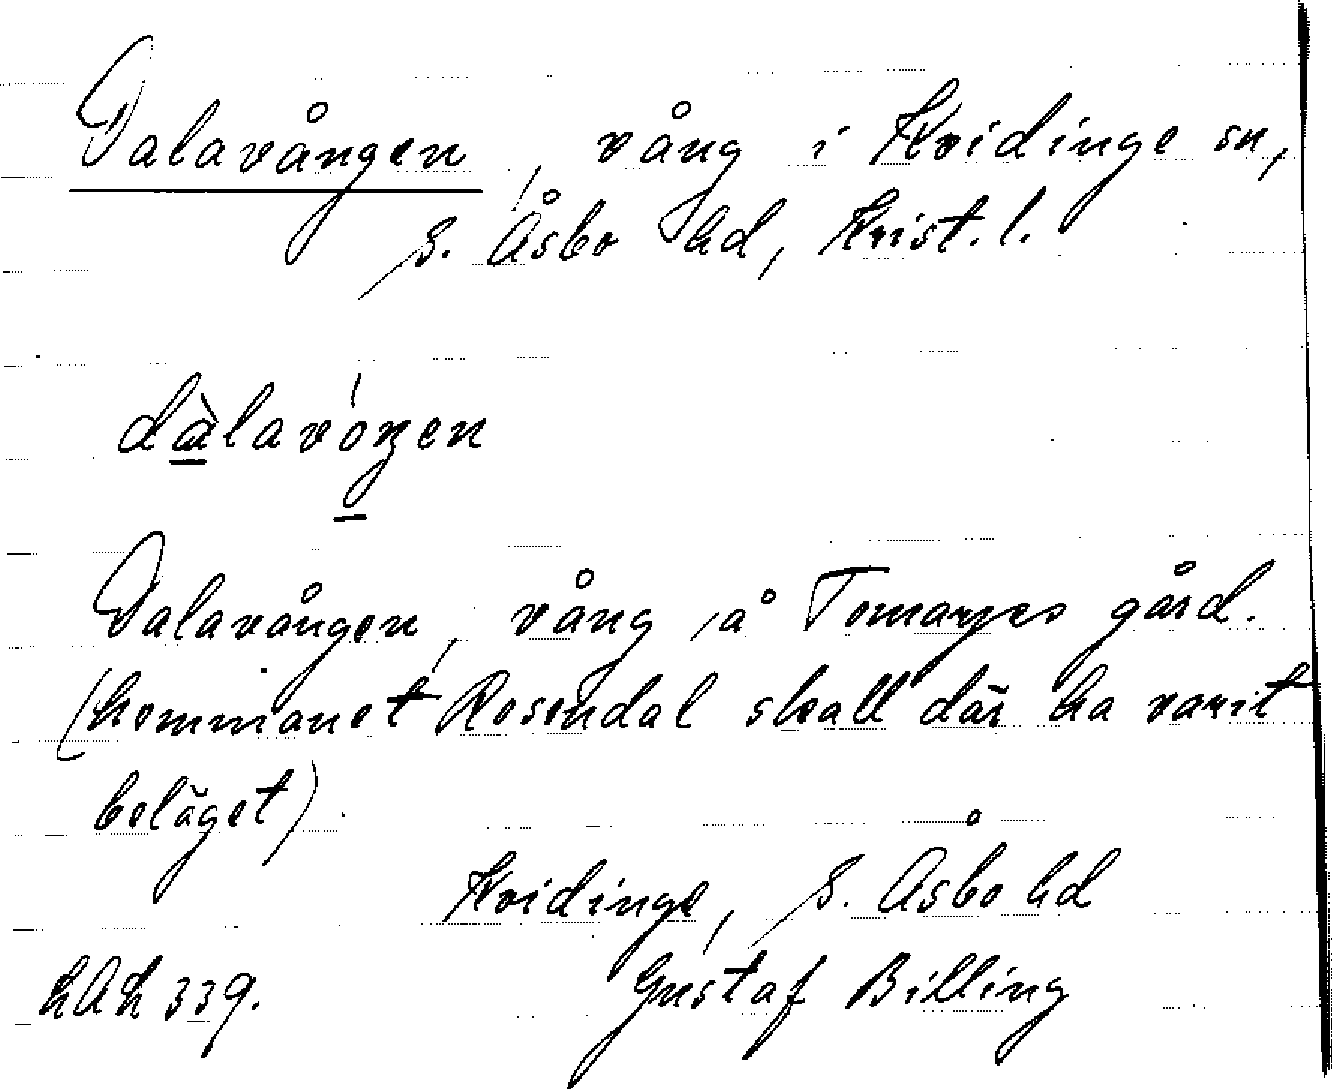 Dalavången, vång i Kvidinge sn,
S. Åsbo hd, Krist. l.
dàlavóŋen
Dalavången, vång å Tomarps gård.
(hemmanet Rosendal skall där ha varit
beläget)
Kvidinge, S. Åsbo hd
Gustaf Billing
339.